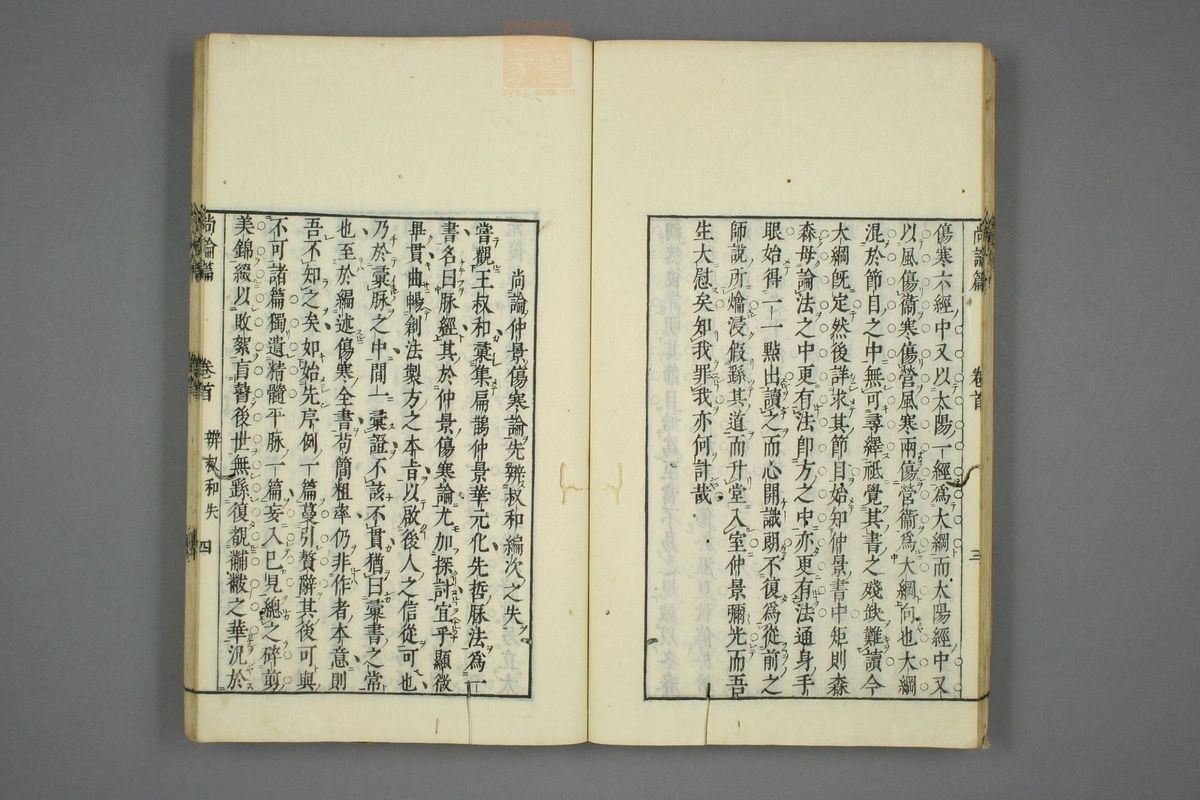 尚論篇 卷首 三
傷寒六經中又以太陽一經爲大綱而太陽經中又
以風傷衞寒傷營風寒兩傷營衞爲大綱何也大綱
混於節目之中無可尋繹祇覺其書之殘缺難讀今
大綱旣定然後詳求其節目始知仲景書中矩則森
森毋論法之中更有法卽方之中亦更有法通身手
眼始得一一點出讀之而心開識朗不復爲從前之
師說所燴浸假繇其道而升堂入室仲景彌光而吾
生大慰矣知我罪我亦何計哉
尚論仲景傷寒論先辨叔和編次之失
嘗觀王叔和彙集扁鵲仲景華元化先哲脉法爲一
書名曰脉經其於仲景傷寒論尤加探討宜乎顯微
畢貫曲暢創法製方之本旨以啟後人之信從可也
乃於彙脉之中間一彙證不該不貫猶曰彙書之常
也至於編述傷寒全書苟簡粗率仍非作者本意則
吾不知之矣如始先序例一篇蔓引贅辭其後可與
不可諸篇獨遺精髓平脉一篇妄入己見總之碎剪
美錦綴以敗絮盲瞽後世無繇復覩黼黻之華況於
尚論篇 卷首 辨叔和失 四
中醫
zysj.com.cn